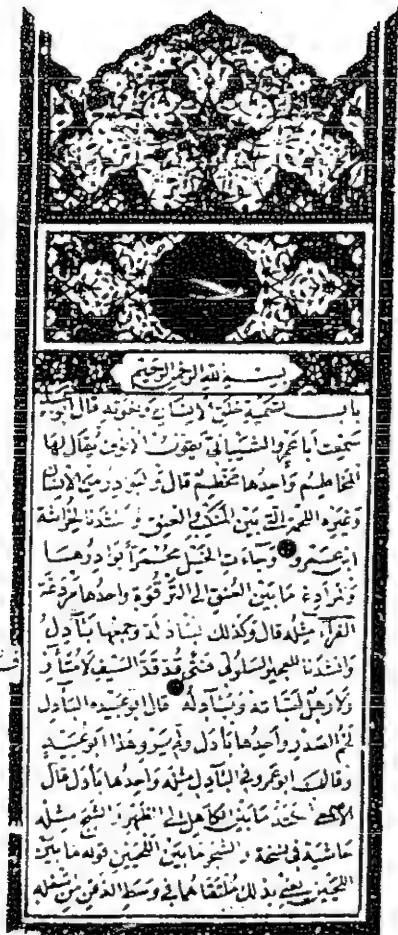 بسم الله الرحمن الرحيم
باب تسمية خلق الإنسان ونعوته قال أبو
سمعت أبا عمرو الشيباني يقول الأنوف يقال لها
المخاطم واحدها مخطم قال والبوادر من الإنسان
وغيره اللحمة التي بين المنكب والعنق وأنشدنا لخراشة
ابن عمرو وجاءت الخيل محمرا بوادرها
والمرادغ ما بين العنق الى الترقوة واحدها مردغة
الفراء مثله قال وكذلك البآدلة وجمعها بآدل
وانشدنا للعجير السلولي فتى قد قد السيف لا متآزف
ولا رهل لباته وبآدله قال ابو عبيدة البآدل
لحم الصدر واحدها بأدل ولم يرو هذا ابو عبيد
وقال ابو عمرو في البآدل مثله واحدها بأدل قال
الكتد ما بين الكاهل الى الظهر والثبج مثله
حاشية في نسخة والشجر ما بين اللحيين قوله ما بين
اللحيين يعني بذلك ملتقاهما في وسط الذقن من اسفله